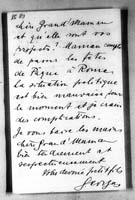 chère Grand'Maman
et qu'elle sont vos
projets? Maman compte
de passer les fêtes
de Pâque à Rome
la situation politique
est bien mauvaise pour
le moment et je crains
des complications.
Je vous baise les mains
chère Grand'Maman
bien tendrement et
respectueusement
Votre dévoué petit fils
Georges